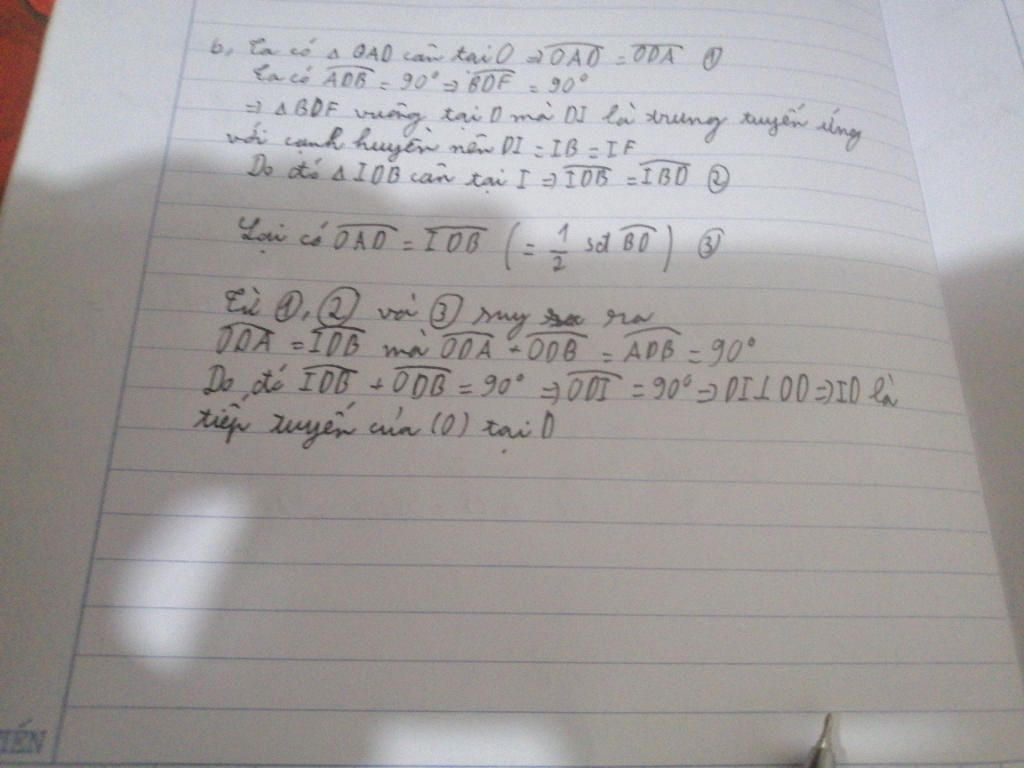 b, Ta có △ OAD cân tại O ⇒ OAD = ODA ①
Ta có ADB = 90° ⇒ BDF = 90°
⇒ △ BDF vuông tại D mà DI là trung tuyến ứng
với cạnh huyền nên DI = IB = IF
Do đó △ IDB cân tại I ⇒ IDB = IBD ②
Lại có OAD = IDB (= 1/2 sđ BD) ③
Từ ①, ② và ③ suy ra
ODA = IDB mà ODA + ODB = ADB = 90°
Do đó IDB + ODB = 90° ⇒ ODI = 90° ⇒ DI ⊥ OD ⇒ ID là
tiếp tuyến của (O) tại D
TIẾN